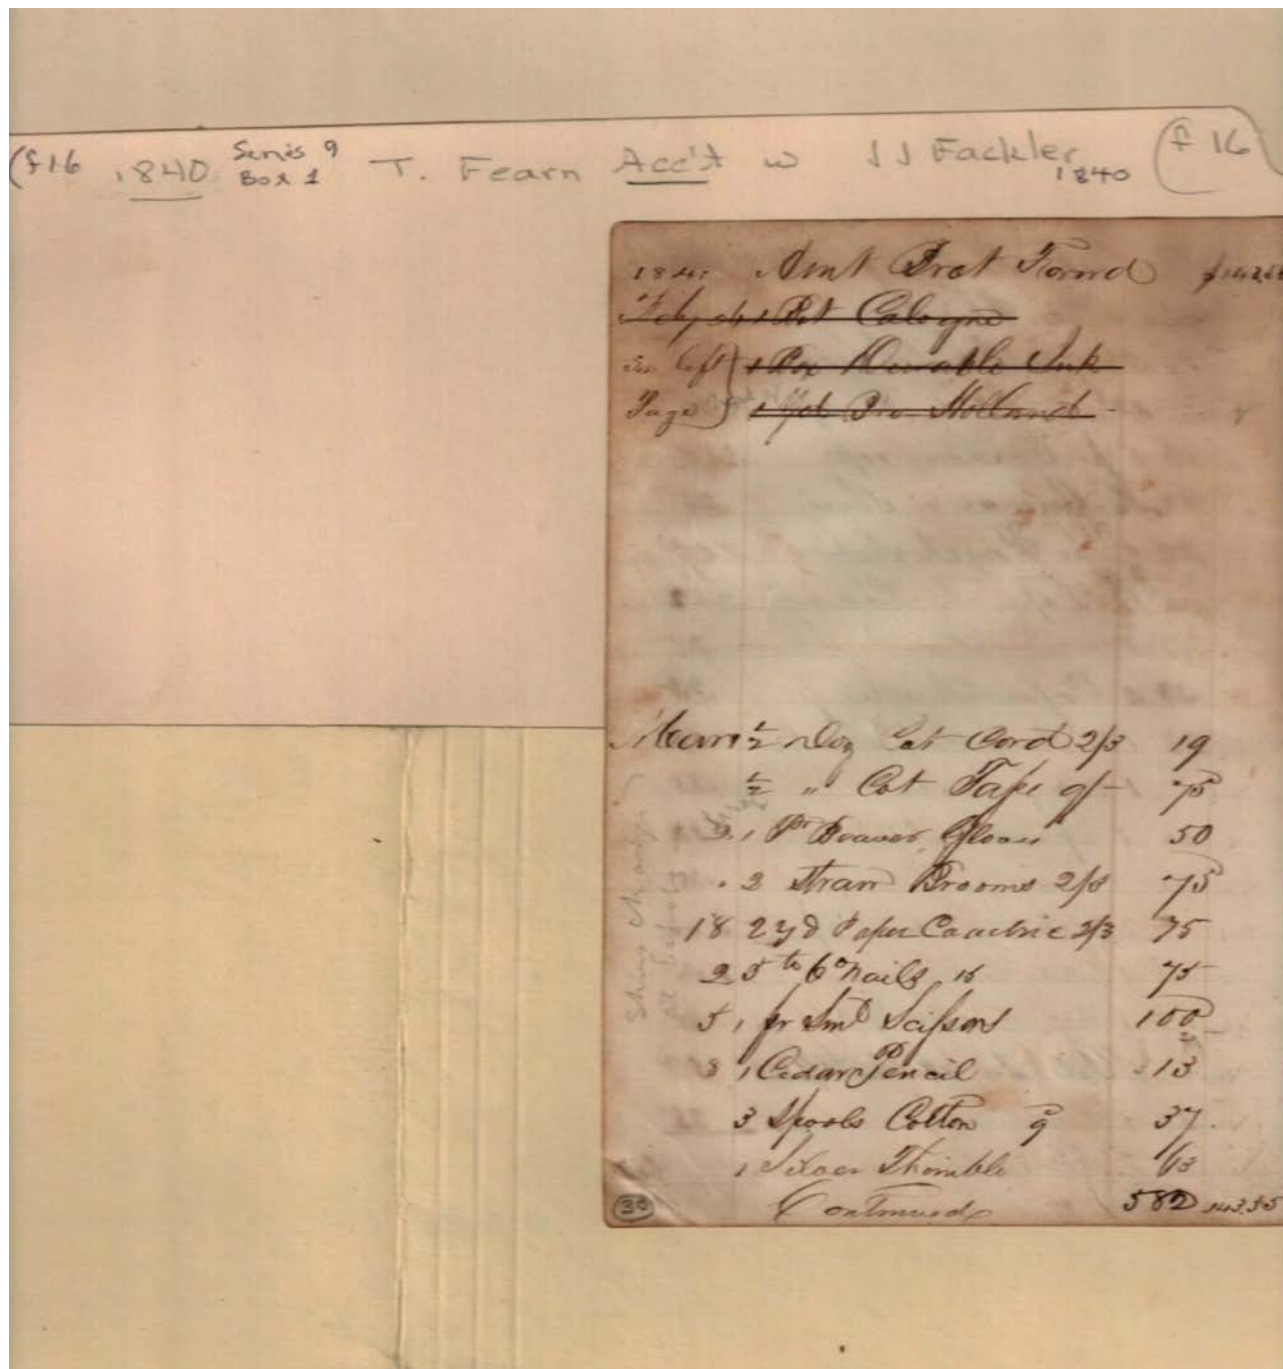 (f16 1840 Series 9 Box 1 T. Fearn Acc't w J J Fackler 1840 (f 16
1841 Amt Brot Forwd
Feby 1 Bot Cologne
See left 1 Box Durable Ink
Page 1 yd Bro Holland
½ Doz Cot Cord 2/3 19
½ " Cot Tape 9/- 75
1 Pr Beaver Gloves 50
2 Straw Brooms 2/3 75
18 2 yd Paper Cambric 2/3 75
2 5 lb 6d Nails 15 75
5 1 pr Smd Scissors 100
8 1 Cedar Pencil 13
3 Spools Cotton 9 37
1 Silver Thimble 63
30 Continued 582 143.55